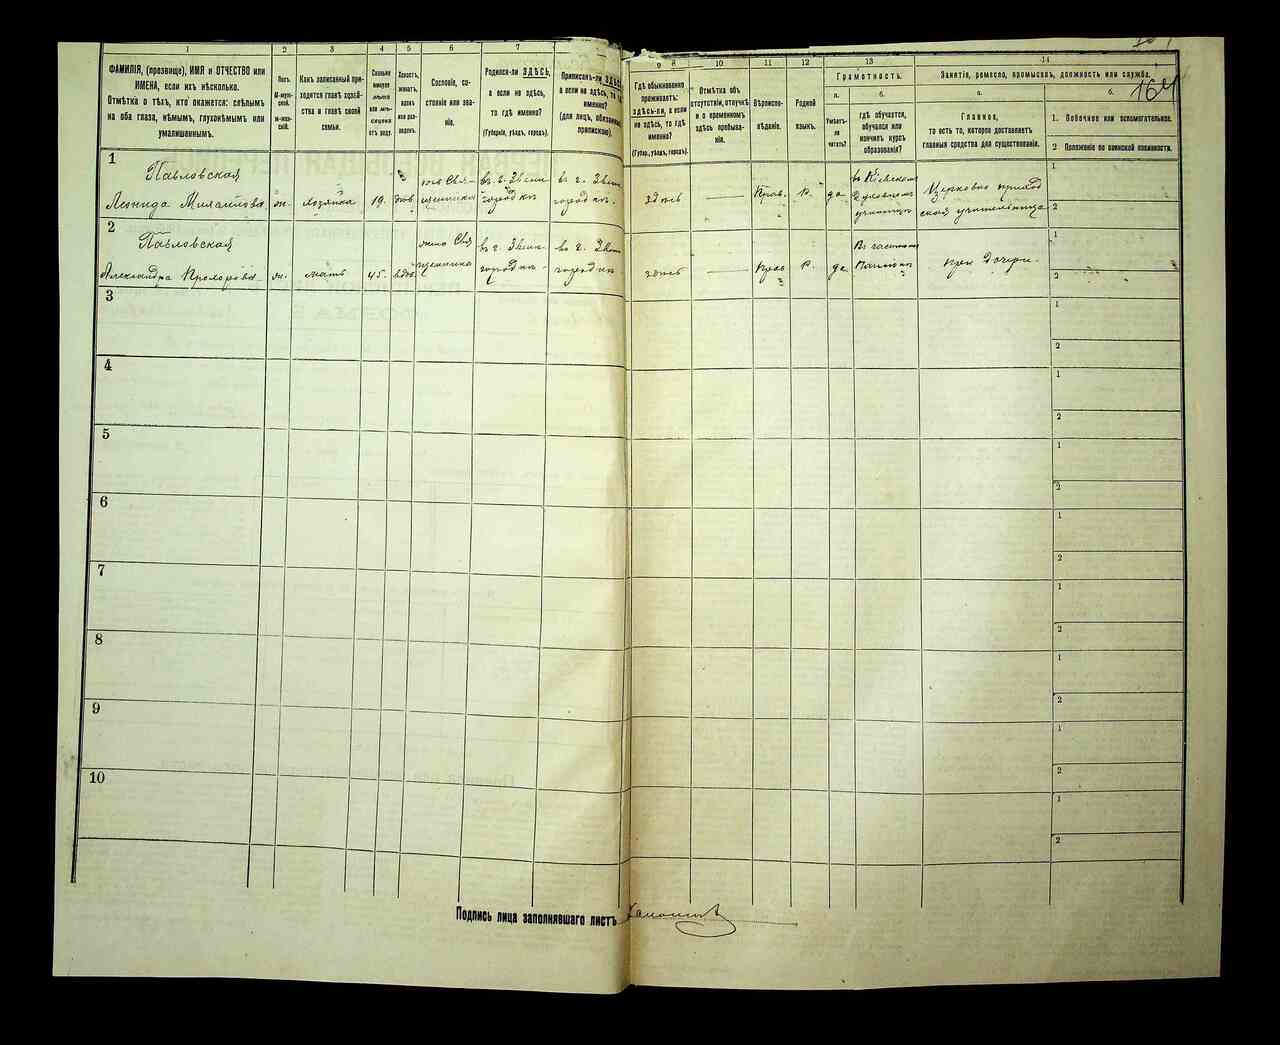 1
2
3
4
5
6
7
8
9
10
11
12
13
14
ФАМИЛІЯ, (прозвище), ИМЯ и ОТЧЕСТВО или
ИМЕНА, если ихъ нѣсколько.
Отмѣтка о тѣхъ, кто окажется: слѣпымъ
на оба глаза, нѣмымъ, глухонѣмымъ или
умалишеннымъ.
Полъ.
М-муж-
ской.
ж-жен-
скій.
Какъ записанный при-
ходится главѣ хозяй-
ства и главѣ своей
семьи.
Сколько
минуло
лѣтъ
или мѣ-
сяцевъ
отъ роду.
Холостъ,
женатъ,
вдовъ
или раз-
веденъ.
Сословіе, со-
стояніе или зва-
ніе.
Родился-ли ЗДѢСЬ,
а если не здѣсь,
то гдѣ именно?
(Губернія, уѣздъ, городъ).
Приписанъ-ли ЗДѢСЬ,
а если не здѣсь, то гдѣ
именно?
(для лицъ, обязанныхъ
припискою).
Гдѣ обыкновенно
проживаетъ:
здѣсь-ли, а если
не здѣсь, то гдѣ
именно?
(Губер., уѣздъ, городъ).
Отмѣтка объ
отсутствіи, отлучкѣ
и о временномъ
здѣсь пребыва-
ніи.
Вѣроиспо-
вѣданіе.
Родной
языкъ.
Грамотность.
а.
б.
Умѣетъ-
ли
читать?
гдѣ обучается,
обучался или
кончилъ курсъ
образованія?
Занятія, ремесло, промыселъ, должность или служба.
а.
б.
Главное,
то есть то, которое доставляетъ
главныя средства для существованія.
1. Побочное или вспомогательное.
2 Положеніе по воинской повинности.
164
1
Павловская
Леонида Михаиловна
ж.
хозяйка
19.
дочь Свя-
щенника
въ г. Звени-
городкѣ
въ г. Звени-
городкѣ.
здѣсь
Прав.
Р.
да
въ Кіевскомъ
Духовномъ
училищѣ
Церковно приход
ская учительница
1
2
2
Павловская
Александра Прохоровна
ж.
мать
45.
вдов.
жена Свя
щенника
въ г. Звени-
городкѣ
въ г. Звени
городкѣ
здѣсь
Прав
Р.
да
Въ частномъ
Пансіонѣ
при дочери.
1
2
3
1
2
4
1
2
5
1
2
6
1
2
7
1
2
8
1
2
9
1
2
10
1
2
Подпись лица заполнявшаго листъ